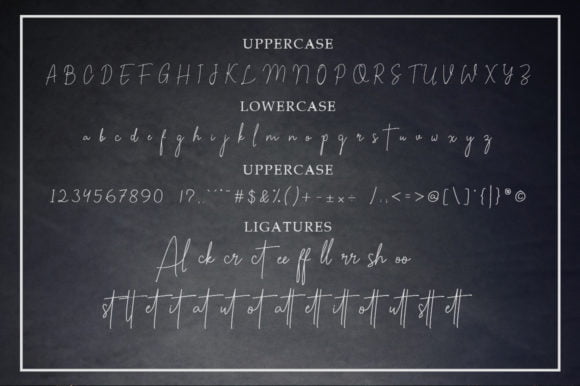 UPPERCASE
A B C D E F G H I J K L M N O P Q R S T U V W X Y Z
LOWERCASE
a b c d e f g h i j k l m n o p q r s t u v w x y z
UPPERCASE
1234567890 !?,,``'¨ #$&%()+-±×÷ /.,<=>@[\]˙{|}®©
LIGATURES
Al ck cr ct ee ff ll rr sh oo
st tt et it at ut ot att ett itt ott utt stt ett